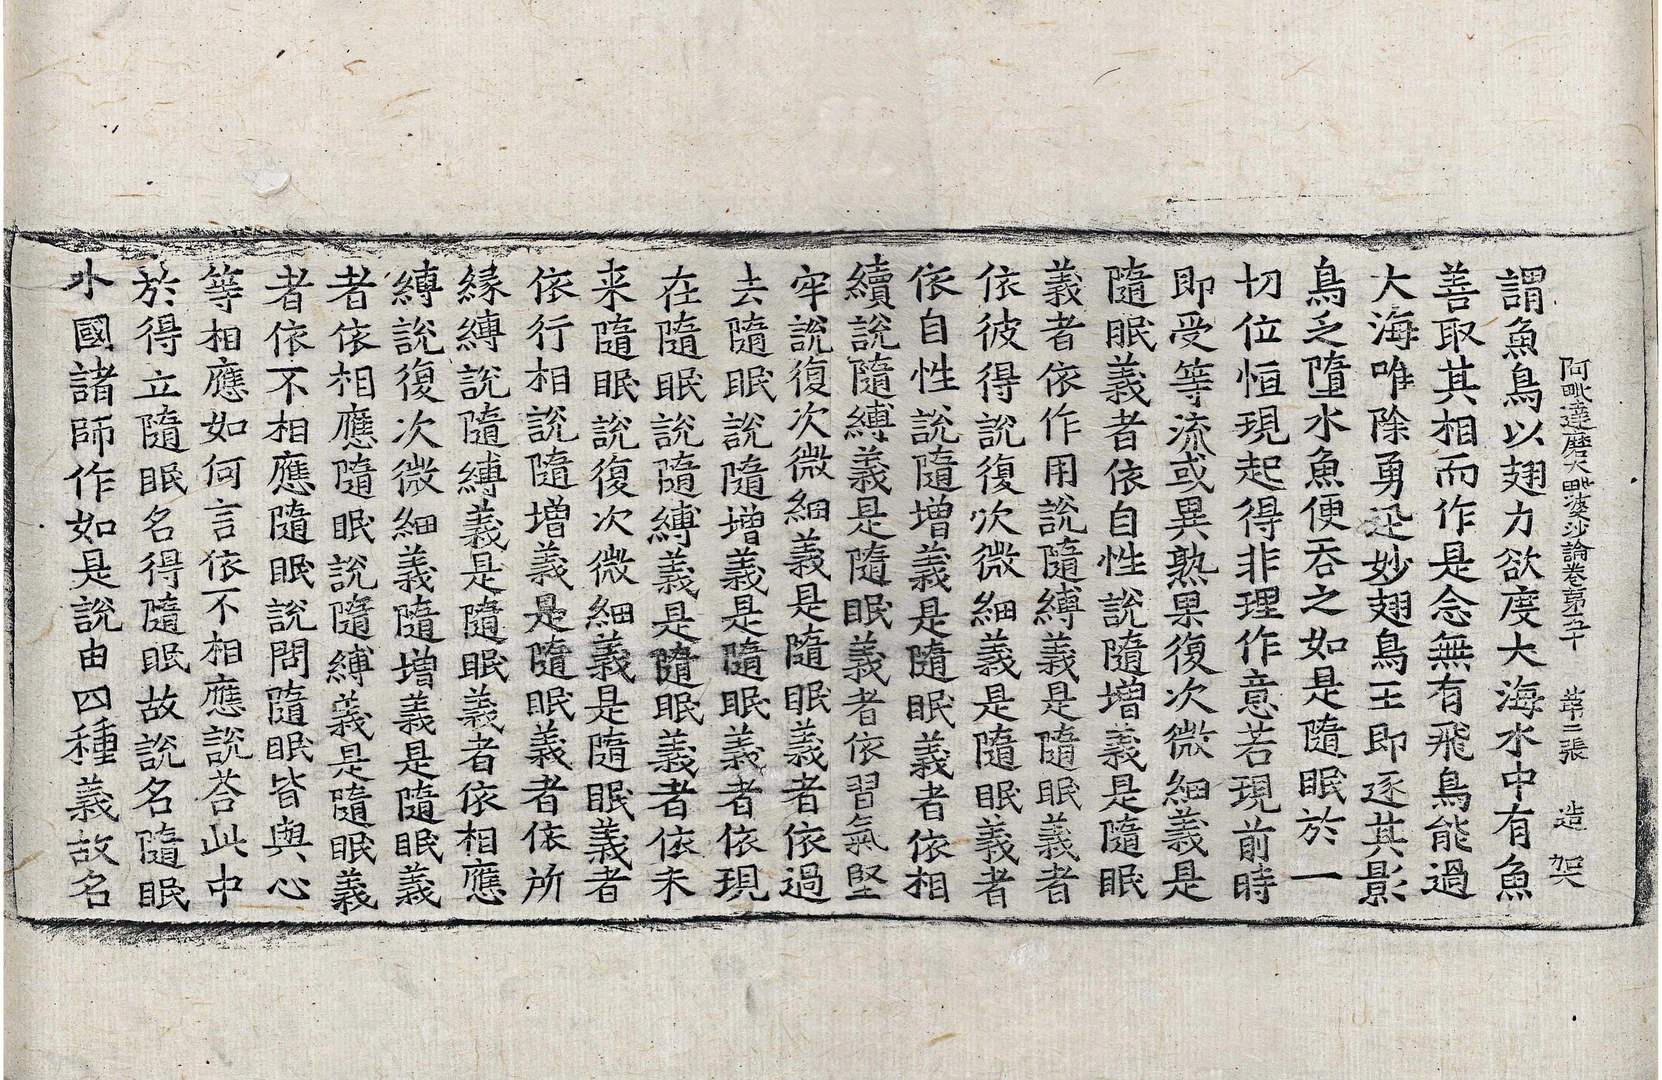 阿毗達磨大毗婆沙論卷第五十　第二張　造　架
謂魚鳥以翅力欲度大海水中有魚
善取其相而作是念無有飛鳥能過
大海唯除勇迅妙翅鳥王即逐其影
鳥乏墮水魚便吞之如是隨眠於一
切位恒現起得非理作意若現前時
即受等流或異熟果復次微細義是
隨眠義者依自性說隨增義是隨眠
義者依作用說隨縛義是隨眠義者
依彼得說復次微細義是隨眠義者
依自性說隨增義是隨眠義者依相
續說隨縛義是隨眠義者依習氣堅
牢說復次微細義是隨眠義者依過
去隨眠說隨增義是隨眠義者依現
在隨眠說隨縛義是隨眠義者依未
来隨眠說復次微細義是隨眠義者
依行相說隨增義是隨眠義者依所
緣縛說隨縛義是隨眠義者依相應
縛說復次微細義隨增義是隨眠義
者依相應隨眠說隨縛義是隨眠義
者依不相應隨眠說問隨眠皆與心
等相應如何言依不相應說荅此中
於得立隨眠名得隨眠故說名隨眠
外國諸師作如是說由四種義故名